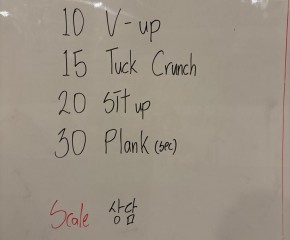 10 V-up
15 Tuck Crunch
20 Sit up
30 Plank (sec)
Scale 상담